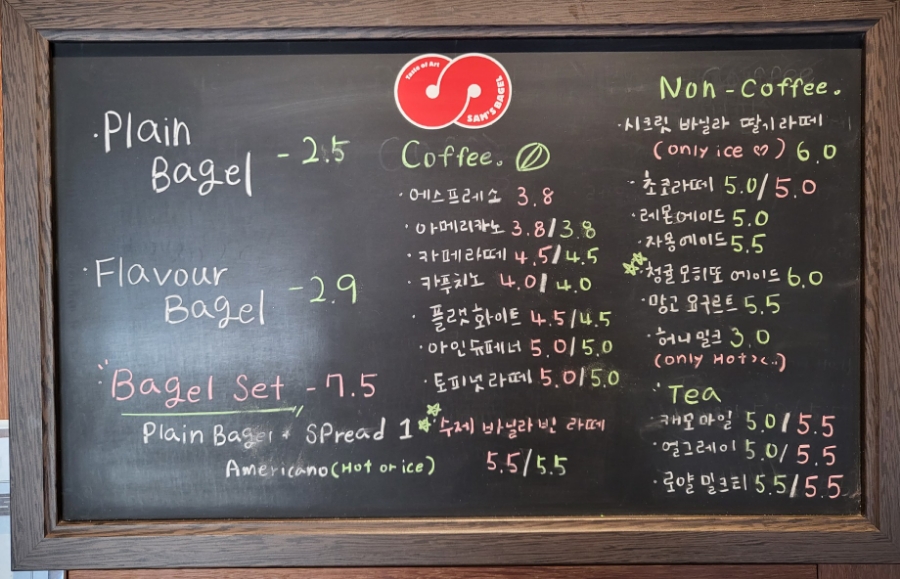 ·Plain
Bagel - 2.5
·Flavour
Bagel - 2.9
Bagel Set - 7.5
Plain Bagel + SPread 1
Americano (Hot or ice)
Taste of Art
SAM'S BAGEL
Coffee.
·에스프레소 3.8
·아메리카노 3.8/3.8
·카페라떼 4.5/4.5
·카푸치노 4.0/4.0
·플랫 화이트 4.5/4.5
·아인슈페너 5.0/5.0
·토피넛 라떼 5.0/5.0
·수제 바닐라빈 라떼
5.5/5.5
Non-Coffee.
·시크릿 바닐라 딸기라떼
(only ice ♡) 6.0
·초코라떼 5.0/5.0
·레몬에이드 5.0
·자몽에이드 5.5
·청귤모히또 에이드 6.0
·망고 요구르트 5.5
·허니 밀크 3.0
(only Hot><..)
Tea
·캐모마일 5.0/5.5
·얼그레이 5.0/5.5
·로얄 밀크티 5.5/5.5